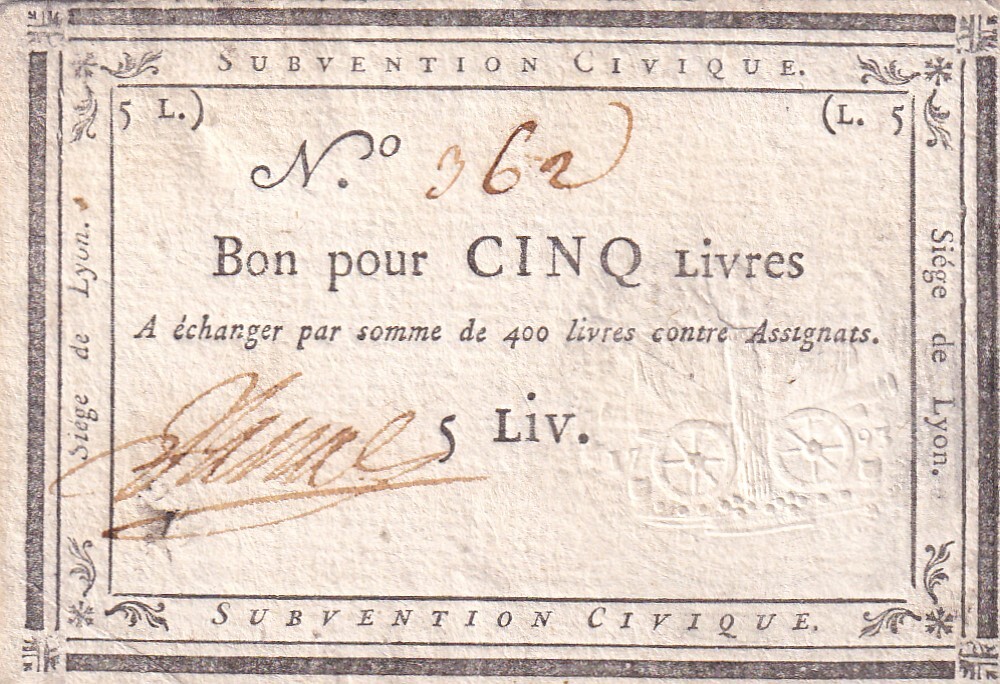 SUBVENTION CIVIQUE.
5 L.) (L. 5
N.º 362
Bon pour CINQ Livres
A échanger par somme de 400 livres contre Assignats.
5 Liv.
SUBVENTION CIVIQUE.
Siége de Lyon.
Siége de Lyon.